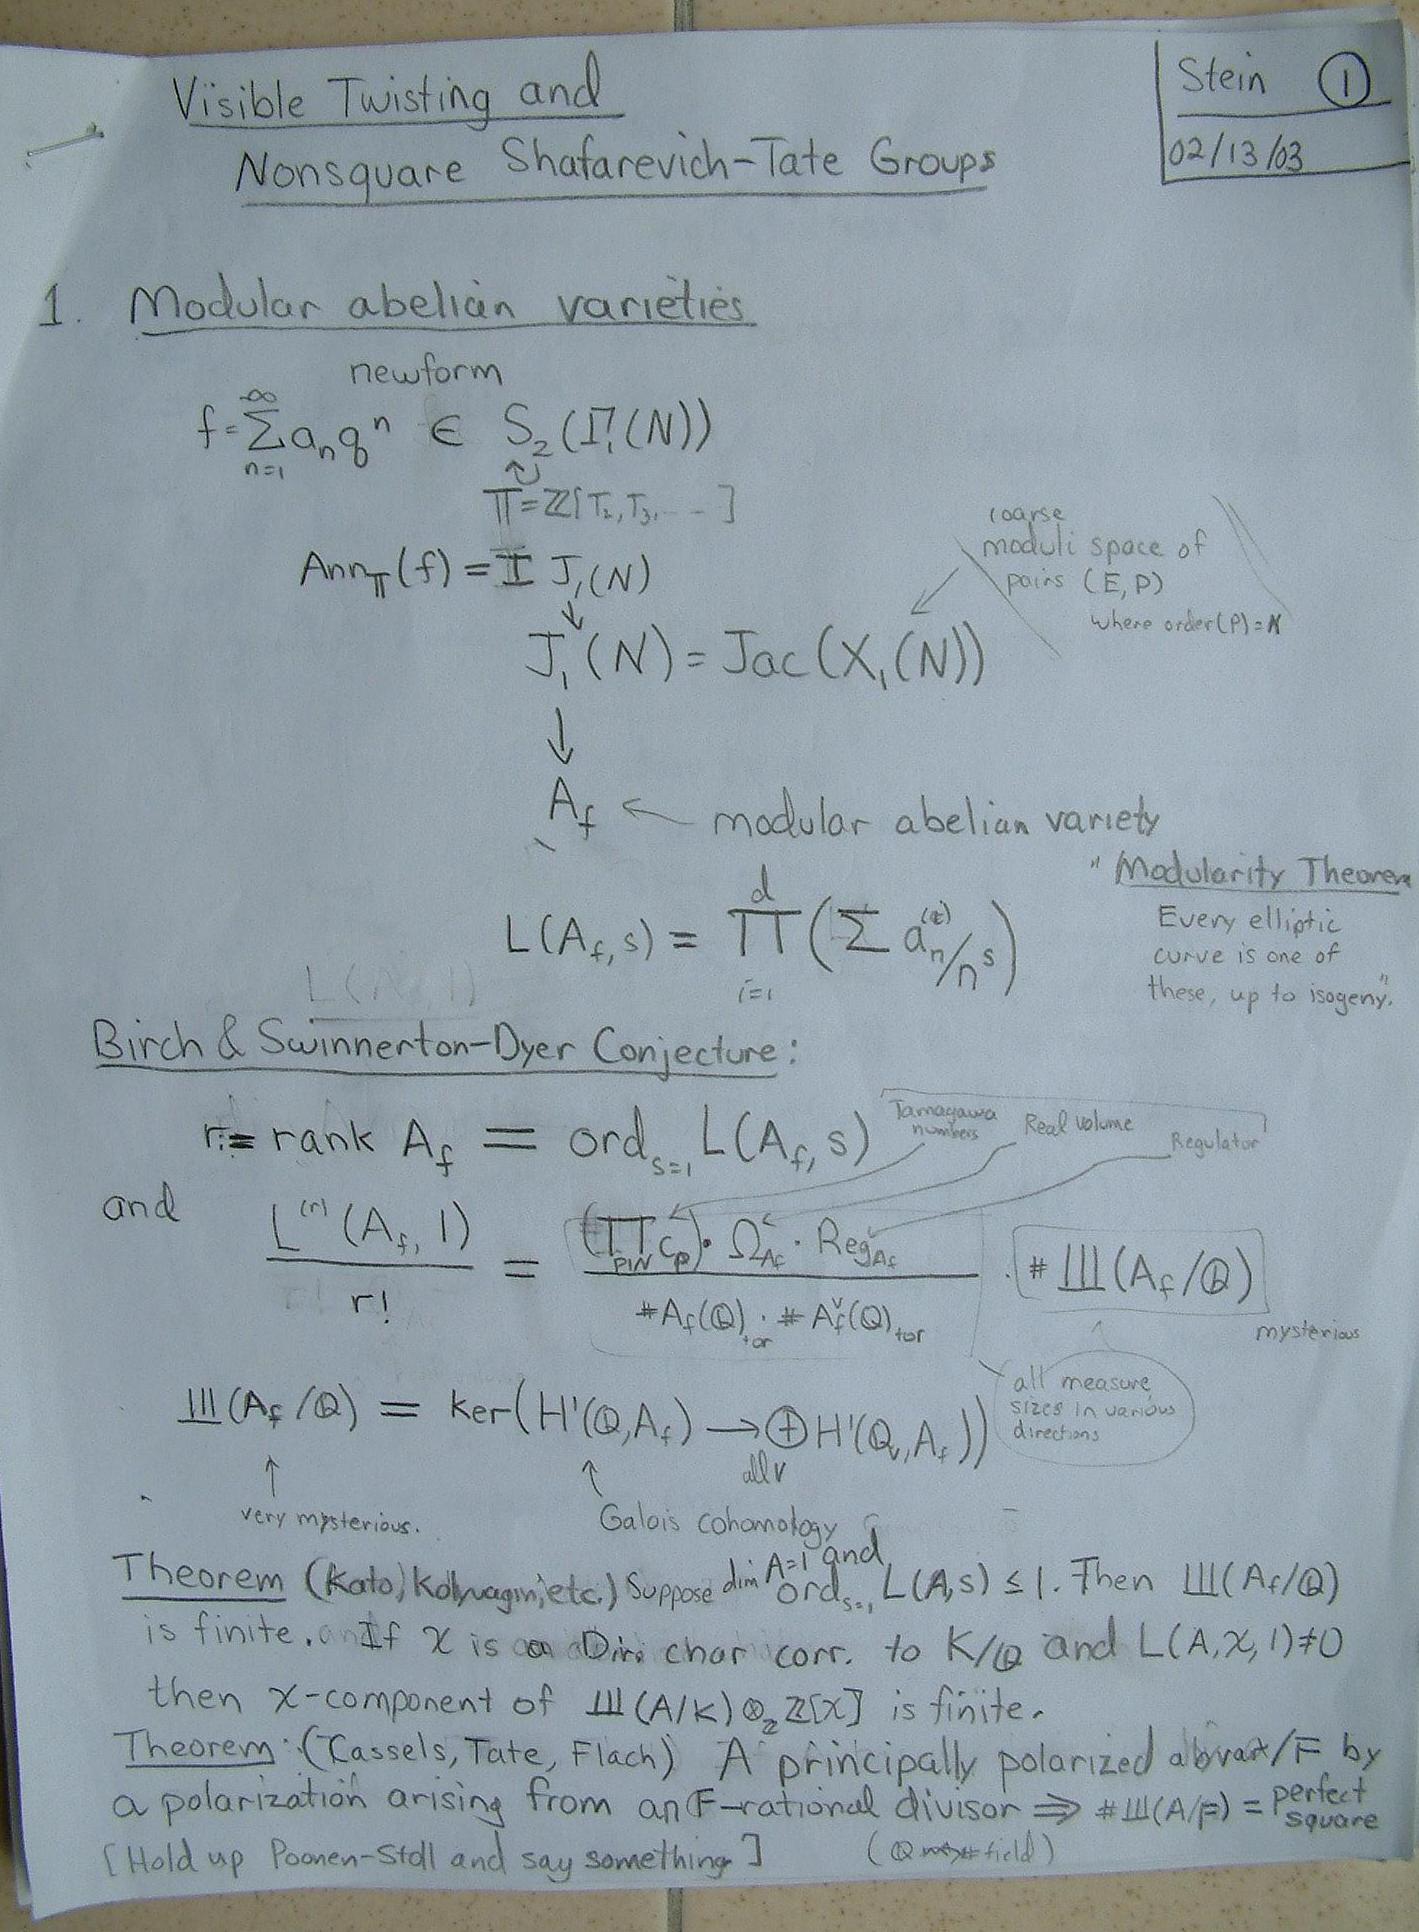 Visible Twisting and
Nonsquare Shafarevich-Tate Groups
Stein ①
02/13/03
1. Modular abelian varieties
newform
f = ∑_{n=1}^∞ a_n q^n ∈ S_2(Γ_1(N))
𝕋 = ℤ[T_2, T_3, ...]
Ann_𝕋(f) = I J_1(N)
↓
J_1(N) = Jac(X_1(N))
coarse
moduli space of
pairs (E, P)
where order(P) = N
↓
A_f ← modular abelian variety
L(A_f, s) = ∏_{i=1}^d (∑ a_n^{(i)}/n^s)
"Modularity Theorem
Every elliptic
curve is one of
these, up to isogeny."
Birch & Swinnerton-Dyer Conjecture:
r := rank A_f = ord_{s=1} L(A_f, s)
Tamagawa
numbers
Real volume
Regulator
and L^{(r)}(A_f, 1) / r! = (∏_{p|N} c_p) · Ω_{A_f} · Reg_{A_f} / #A_f(ℚ)_tor · #A_f^∨(ℚ)_tor · #Ш(A_f/ℚ)
mysterious
all measure
sizes in various
directions
Ш(A_f/ℚ) = ker(H¹(ℚ, A_f) → ⊕_{all v} H¹(ℚ_v, A_f))
very mysterious.
Galois cohomology
Theorem (Kato, Kolyvagin, etc.) Suppose dim A=1 and ord_{s=1} L(A,s) ≤ 1. Then Ш(A_f/ℚ)
is finite. If χ is a Diri. char corr. to K/ℚ and L(A,χ,1)≠0
then χ-component of Ш(A/K)⊗_ℤ ℤ[χ] is finite.
Theorem: (Cassels, Tate, Flach) A principally polarized abvar/F by
a polarization arising from an F-rational divisor ⇒ #Ш(A/F) = perfect square
[Hold up Poonen-Stoll and say something] (# field)